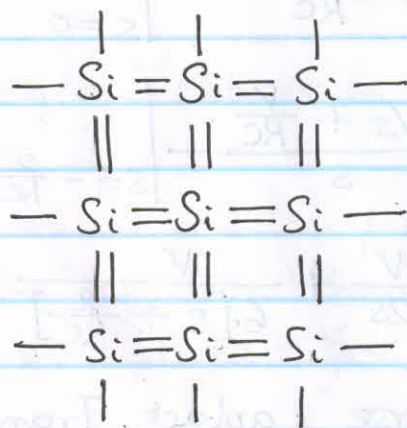 — Si = Si = Si —
— Si = Si = Si —
— Si = Si = Si —